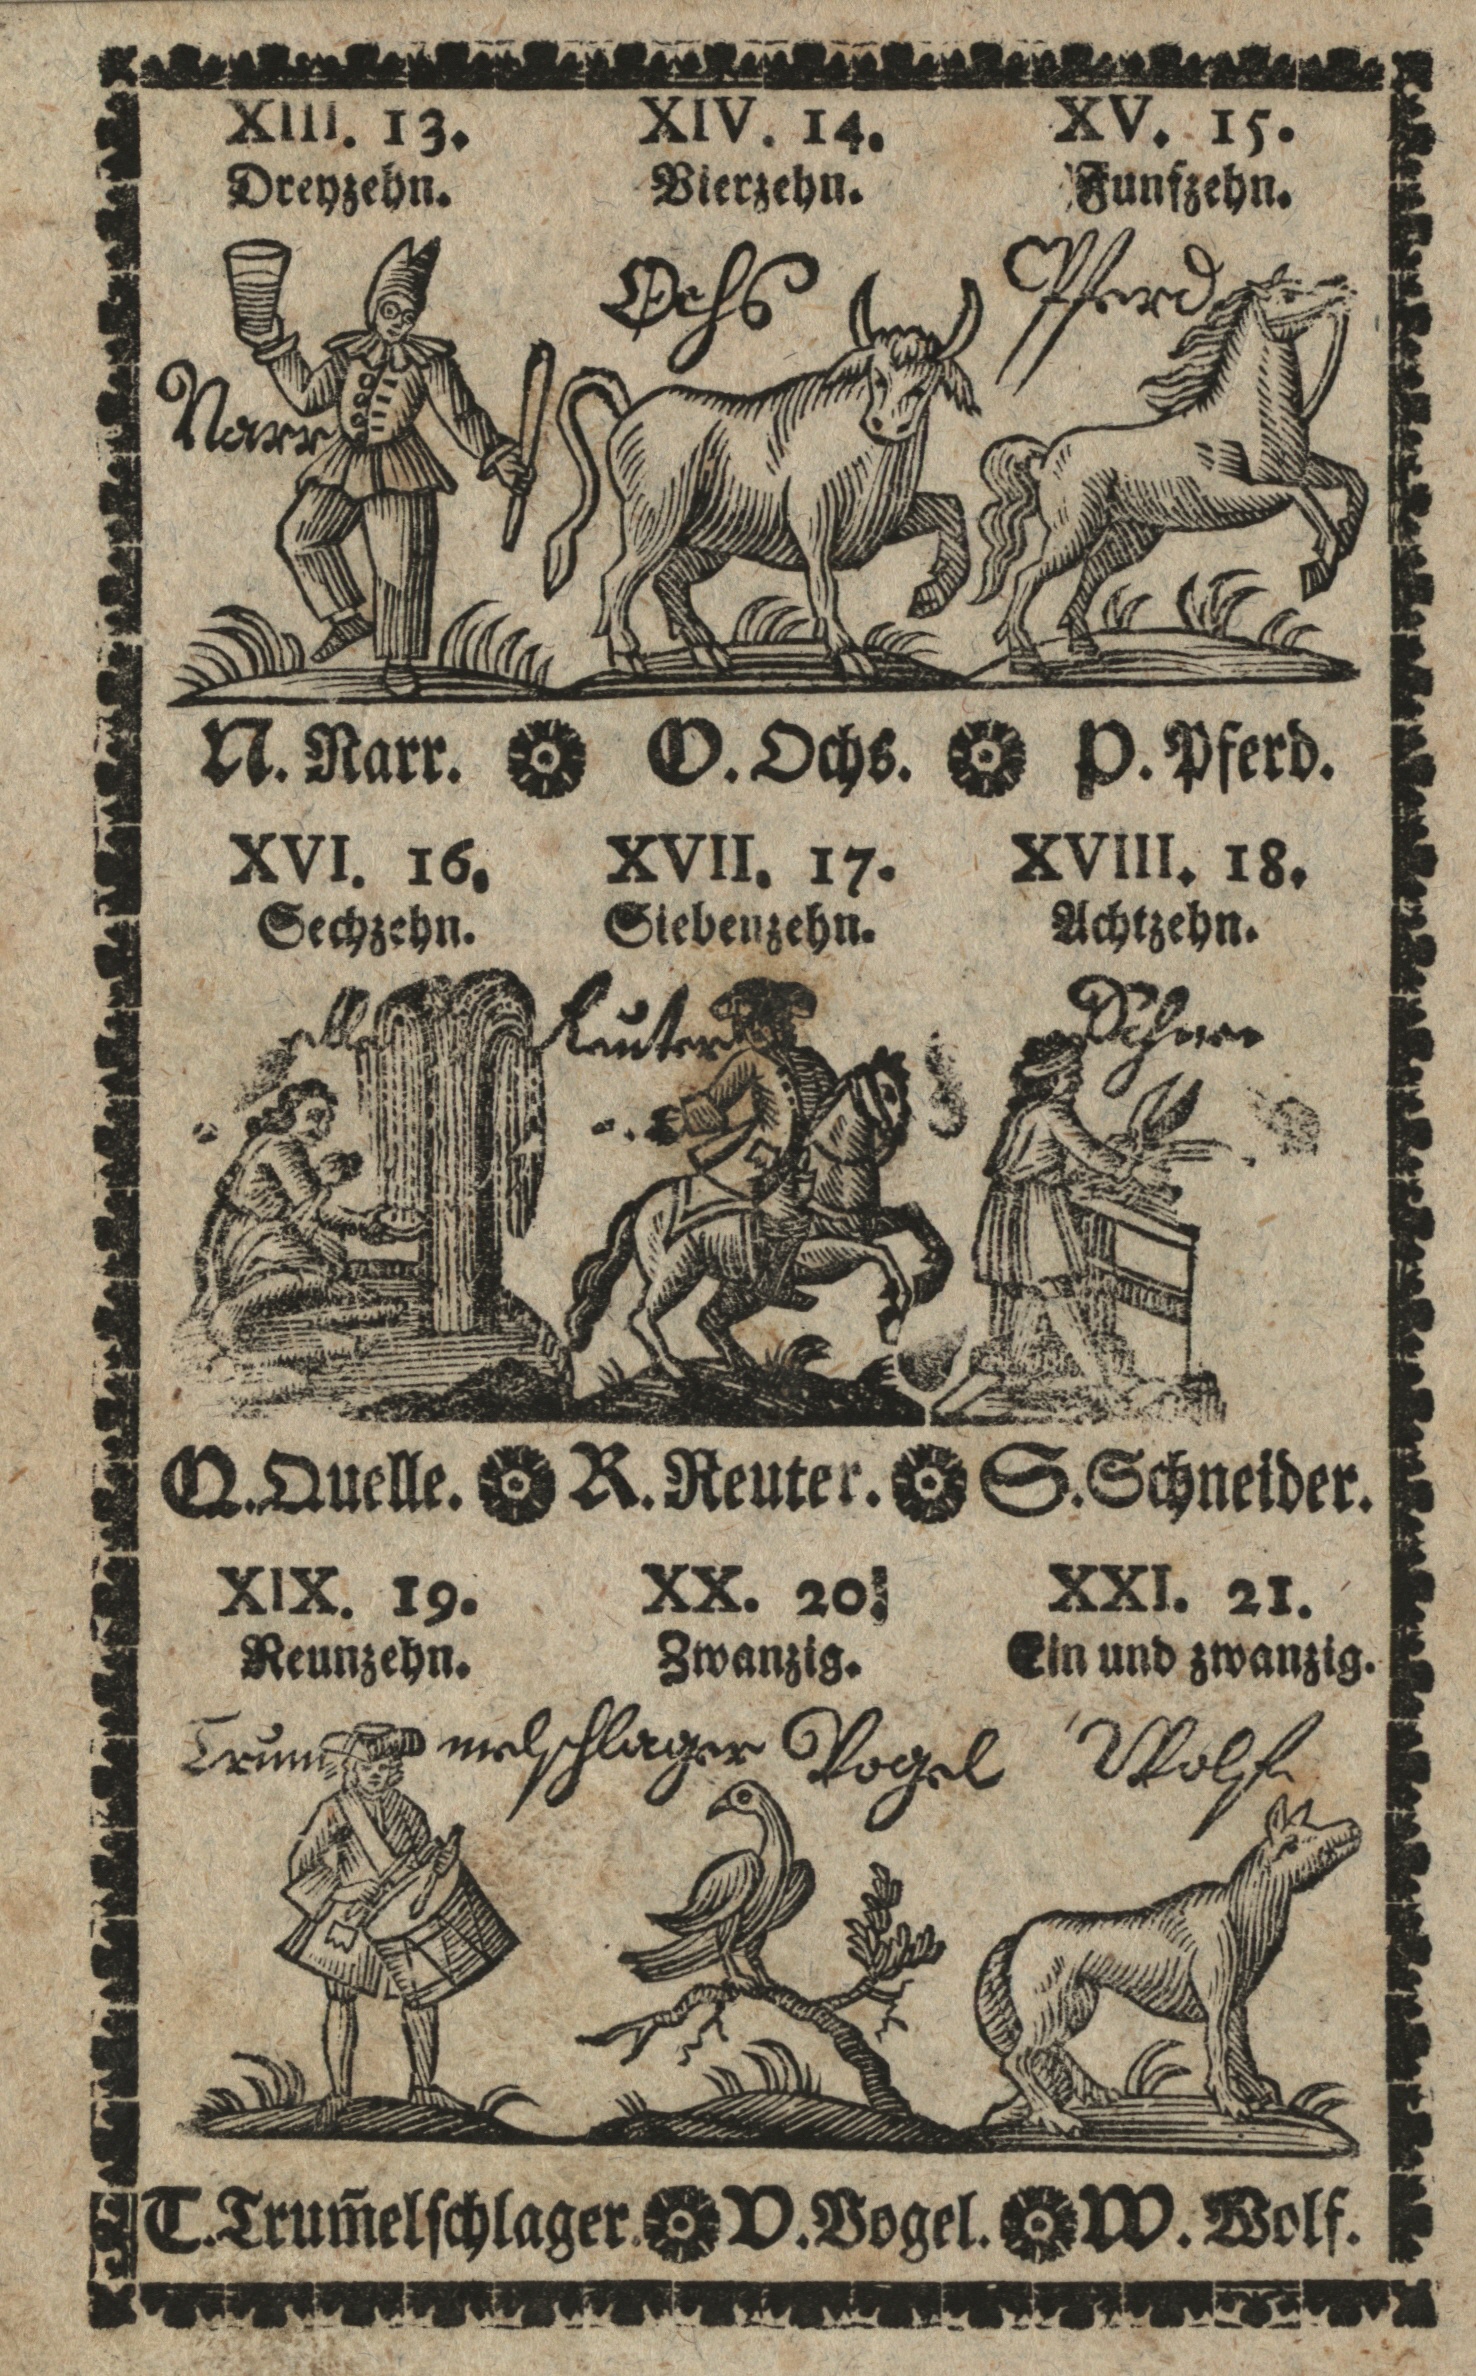 XIII. 13. XIV. 14. XV. 15.
Dreyzehn. Vierzehn. Funfzehn.
Narr Ochs Pferd
N. Narr. O. Ochs. P. Pferd.
XVI. 16. XVII. 17. XVIII. 18.
Sechzehn. Siebenzehn. Achtzehn.
Reuter
Q. Quelle. R. Reuter. S. Schneider.
XIX. 19. XX. 20. XXI. 21.
Neunzehn. Zwanzig. Ein und zwanzig.
Trummelschlager Vogel Wolf
T. Trum̄elschlager. V. Vogel. W. Wolf.